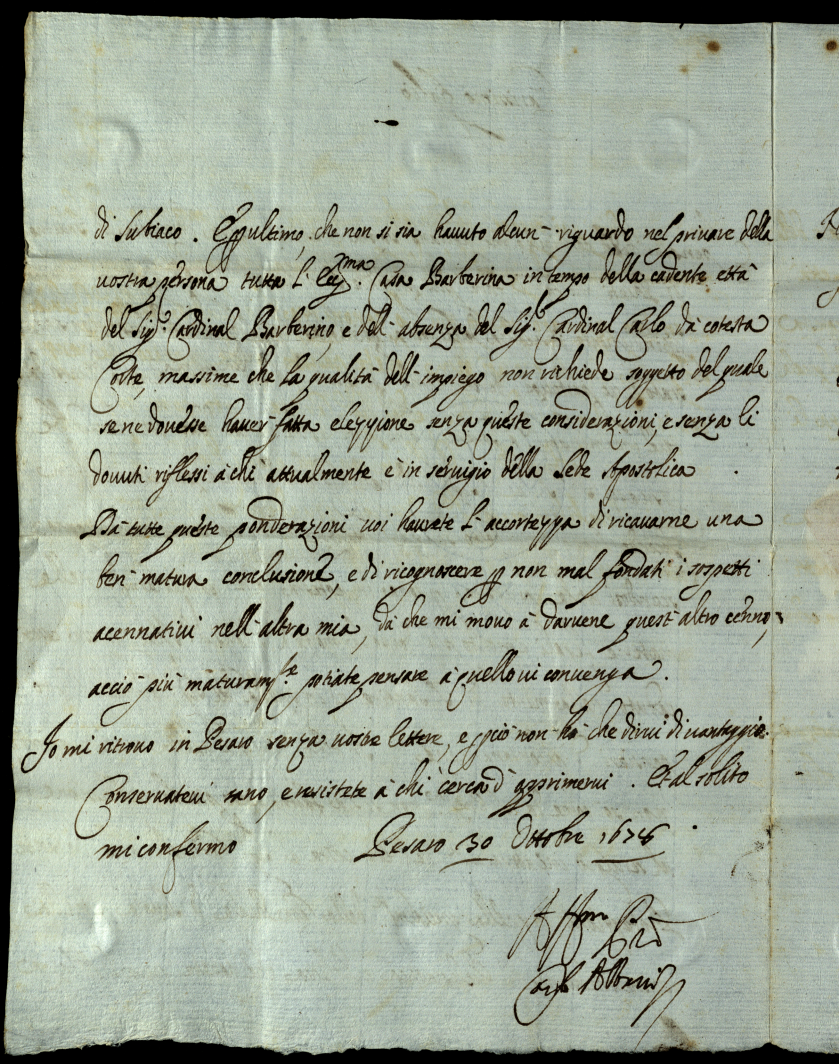 di Subiaco. E p ultimo, che non si sia havuto alcun riguardo nel privare della
vostra persona tutta l' Ecc.ma Casa Barberina in tempo della cadente età
del Sig.r Cardinal Barberino, e dell' absenza del Sig.r Cardinal Carlo da cotesta
Corte, massime che la qualità dell' impiego non richiede soggetto del quale
se ne dovesse haver fatta elezzione senza queste considerazioni, e senza li
dovuti riflessi à chi attualmente è in servigio della Sede Apostolica.
Da tutte queste ponderazioni voi havrete l' accortezza di ricavarne una
ben matura conclusione, e di ricognoscere p non mal fondati i sospetti
acennativi nell' altra mia, da che mi movo à darvene quest' altro cenno,
acciò più maturam.te potiate pensare à quello vi convenga.
Io mi ritrovo in Pesaro senza vostre lettere, e pciò non hò che dirvi di vantaggio.
Conservatevi sano, e resistete à chi cerca d' opprimervi. Et al solito
mi confermo Pesaro 30 Ottobre 1676.
Aff.mo
Albani